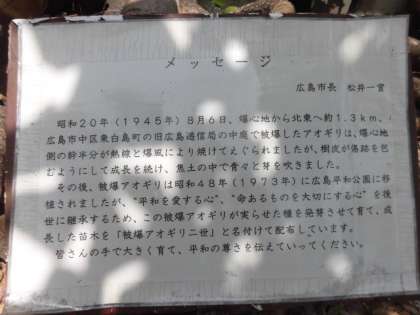 メッセージ
広島市長　松井一實
昭和20年（1945年）8月6日、爆心地から北東へ約1.3km、
広島市中区東白島町の旧広島逓信局の中庭で被爆したアオギリは、爆心地
側の幹半分が熱線と爆風により焼けてえぐられましたが、樹皮が傷跡を包
むようにして成長を続け、焦土の中で青々と芽を吹きました。
その後、被爆アオギリは昭和48年（1973年）に広島平和公園に移
植されましたが、“平和を愛する心”、“命あるものを大切にする心”を後
世に継承するため、この被爆アオギリが実らせた種を発芽させて育て、成
長した苗木を「被爆アオギリ二世」と名付けて配布しています。
皆さんの手で大きく育て、平和の尊さを伝えていってください。